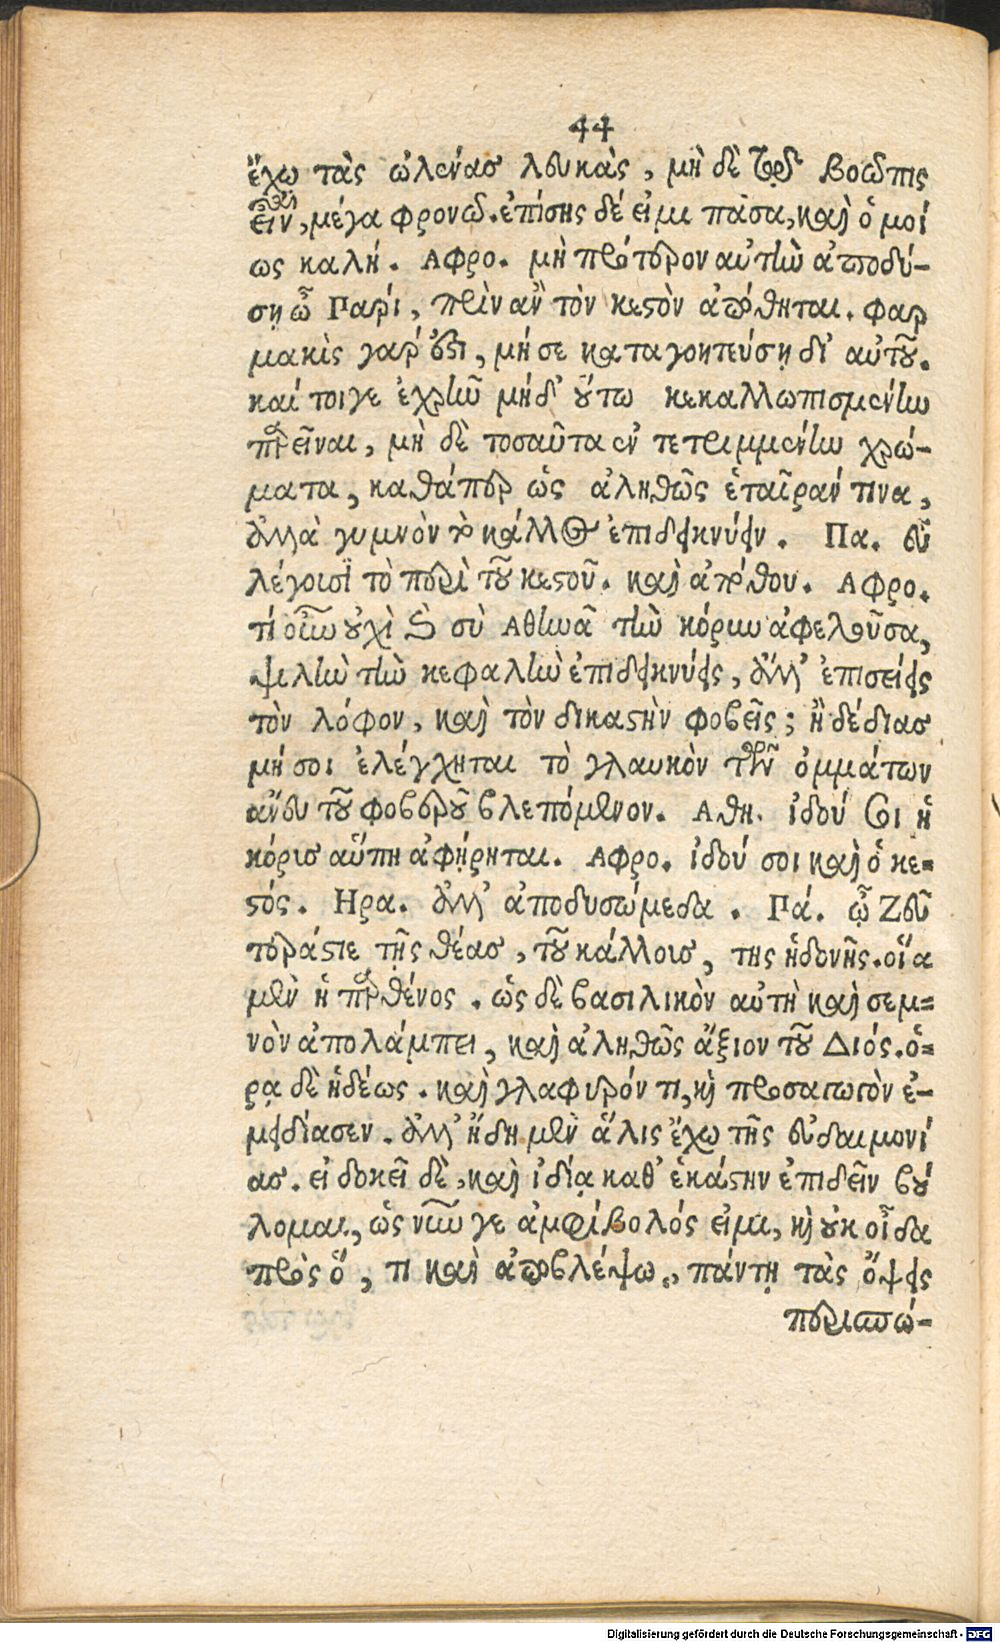 44
ἔχω τὰς ὠλένας λευκὰς, μὴ δὲ τῷ βοῶπις
εἶναι, μέγα φρονῶ. ἐπίσης δέ εἰμι πᾶσα, καὶ ὁμοί
ως καλή. Αφρο. μὴ πρότερον αὐτὴν ἀποδύ-
σῃ ὦ Γαρί, πρὶν ἂν τὸν κεστὸν ἀπόθηται. φαρ
μακὶς γάρ ἐστι, μή σε καταγοητεύσῃ δι' αὐτοῦ.
καί τοιγε ἐχρῆν μήδ' οὕτω κεκαλλωπισμένην
παρεῖναι, μὴ δὲ τοσαῦτα ἐντετριμμένην χρώ-
ματα, καθάπερ ὡς ἀληθῶς ἑταῖράν τινα,
ἀλλὰ γυμνὸν τὸ κάλλος ἐπιδεικνύειν. Πα. εὖ
λέγοισὶ τὸ περὶ τοῦ κεστοῦ. καὶ ἀπόθου. Αφρο.
τί οὖν οὐχὶ καὶ σὺ Αθηνᾶ τὴν κόρυν ἀφελοῦσα,
ψιλὴν τὴν κεφαλὴν ἐπιδεικνύεις, ἀλλ' ἐπισείεις
τὸν λόφον, καὶ τὸν δικαστὴν φοβεῖς; ἢ δέδιας
μή σοι ἐλέγχηται τὸ γλαυκὸν τῶν ὀμμάτων
ἄνευ τοῦ φοβεροῦ βλεπόμενον. Αθη. ἰδού σοι ἡ
κόρις αὕπη ἀφῄρηται. Αφρο. ἰδού σοι καὶ ὁ κε-
στός. Ηρα. ἀλλ' ἀποδυσώμεδα. Γά. ὦ Ζεῦ
τεράστιε τῆς θέας, τοῦ κάλλοις, της ἡδονῆς. οἵα
μὲν ἡ παρθένος. ὡς δὲ βασιλικὸν αὐτὴ καὶ σεμ-
νὸν ἀπολάμπει, καὶ ἀληθῶς ἄξιον τοῦ Διός. ὁ-
ρᾳ δὲ ἡδέως. καὶ γλαφυρόν τι, καὶ προσαγωγὸν ἐ-
μειδίασεν. ἀλλ' ἤδη μὲν ἅλις ἔχω τῆς εὐδαιμονί
ας. εἰ δοκεῖ δὲ, καὶ ἰδίᾳ καθ' ἑκάστην ἐπιδεῖν βού
λομαι, ὡς νῦν γε ἀμφίβολός εἰμι, καὶ οὐκ οἶδα
πρὸς ὅ, τι καὶ ἀποβλέψω, πάντῃ τὰς ὄψεις
περισπώ-
Digitalisierung gefördert durch die Deutsche Forschungsgemeinschaft - DFG